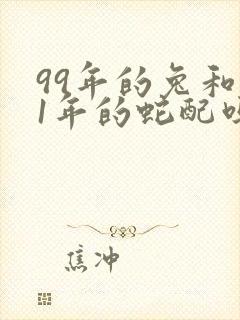 99年的兔和
1年的蛇配
焦冲